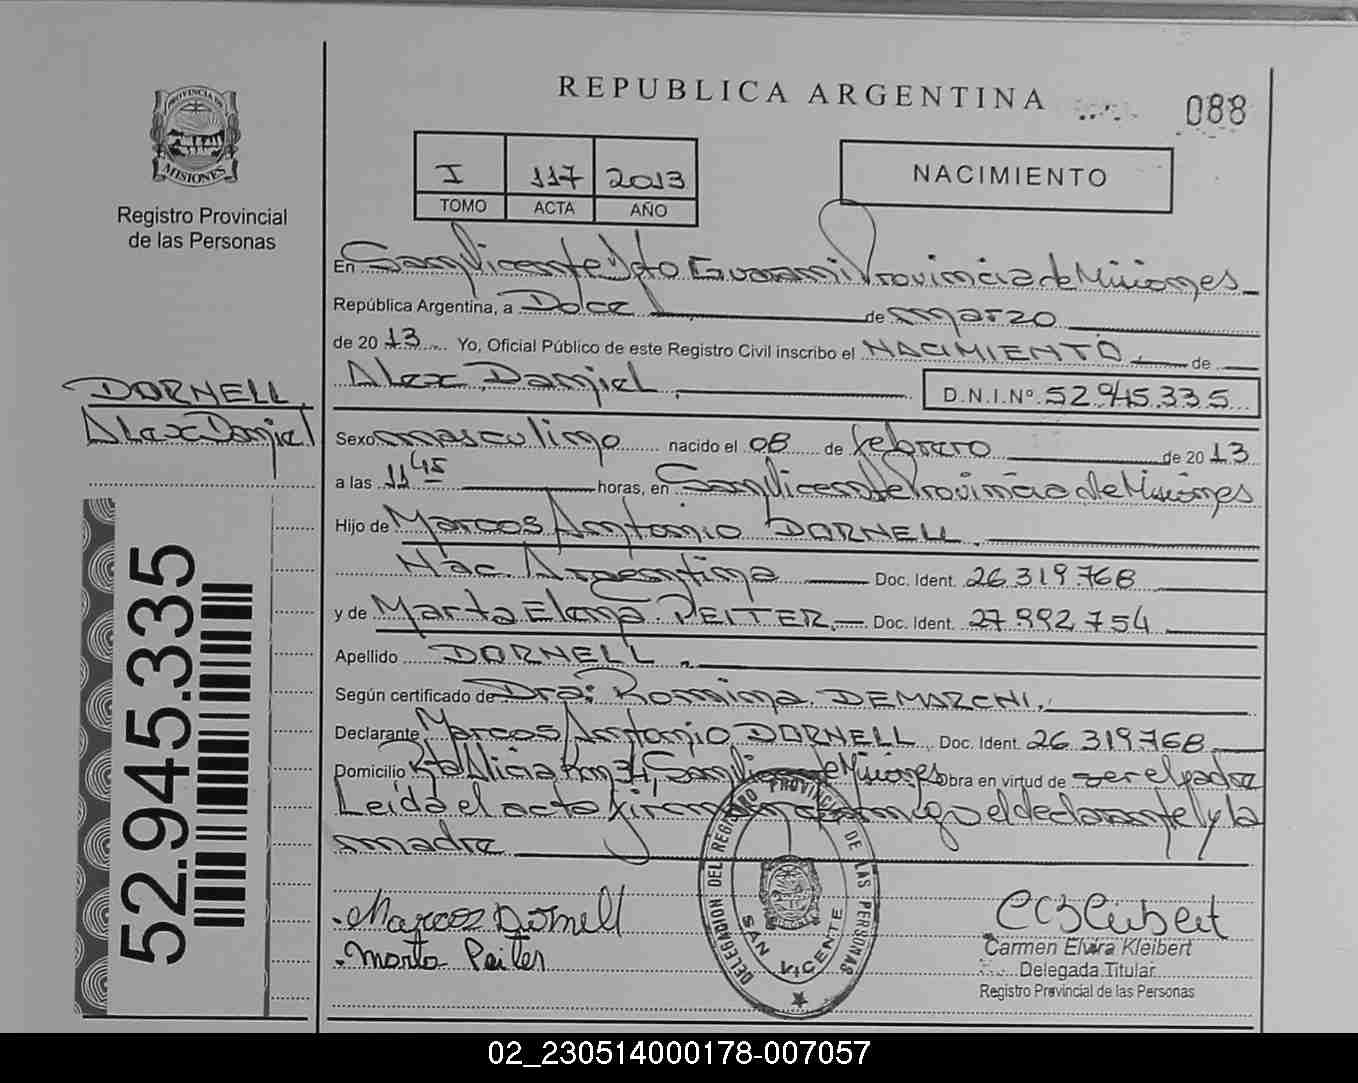 REPUBLICA ARGENTINA
088
PROVINCIA DE
MISIONES
Registro Provincial
de las Personas
I 117 2013
TOMO ACTA AÑO
NACIMIENTO
En San Vicente Dpto Guaraní Provincia de Misiones
República Argentina, a Doce de marzo
de 2013 Yo, Oficial Público de este Registro Civil inscribo el NACIMIENTO de
Alex Daniel D.N.I.Nº 52.945.335
DORNELL
Alex Daniel
Sexo masculino nacido el 08 de febrero de 2013
a las 11 45 horas, en San Vicente Provincia de Misiones
Hijo de Marcos Antonio DORNELL
Nac. Argentina Doc. Ident. 26.319.768
y de Marta Elena PEITER Doc. Ident. 27.992.754
Apellido DORNELL
Según certificado de Dra: Romina DEMARCHI
Declarante Marcos Antonio DORNELL Doc. Ident. 26.319.768
Domicilio Pto Alicia Km 34, San Vicente Misiones obra en virtud de ser el padre
Leída el acta firman conmigo el declarante y la
madre
52.945.335
Marcos Dornell
Marta Peiter
DELEGACION DEL REGISTRO PROVINCIAL DE LAS PERSONAS
SAN VICENTE
Carmen Elvira Kleibert
Delegada Titular
Registro Provincial de las Personas
02_230514000178-007057